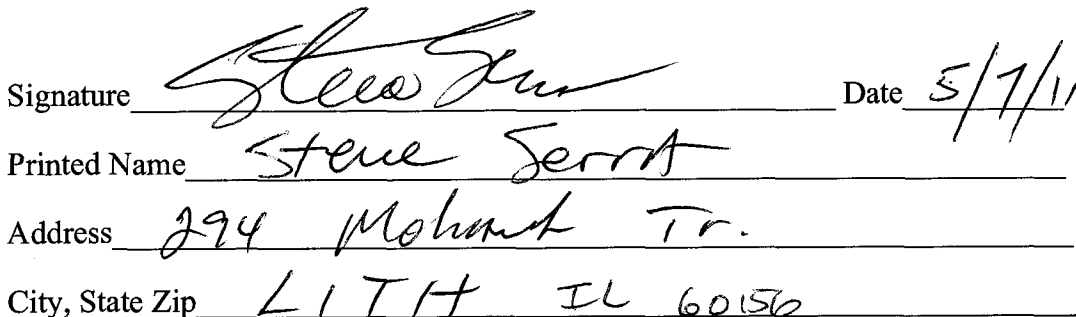 Signature Steve Serrot Date 5/7/11
Printed Name Steve Serrot
Address 294 Mohawk Tr.
City, State Zip LITH IL 60156